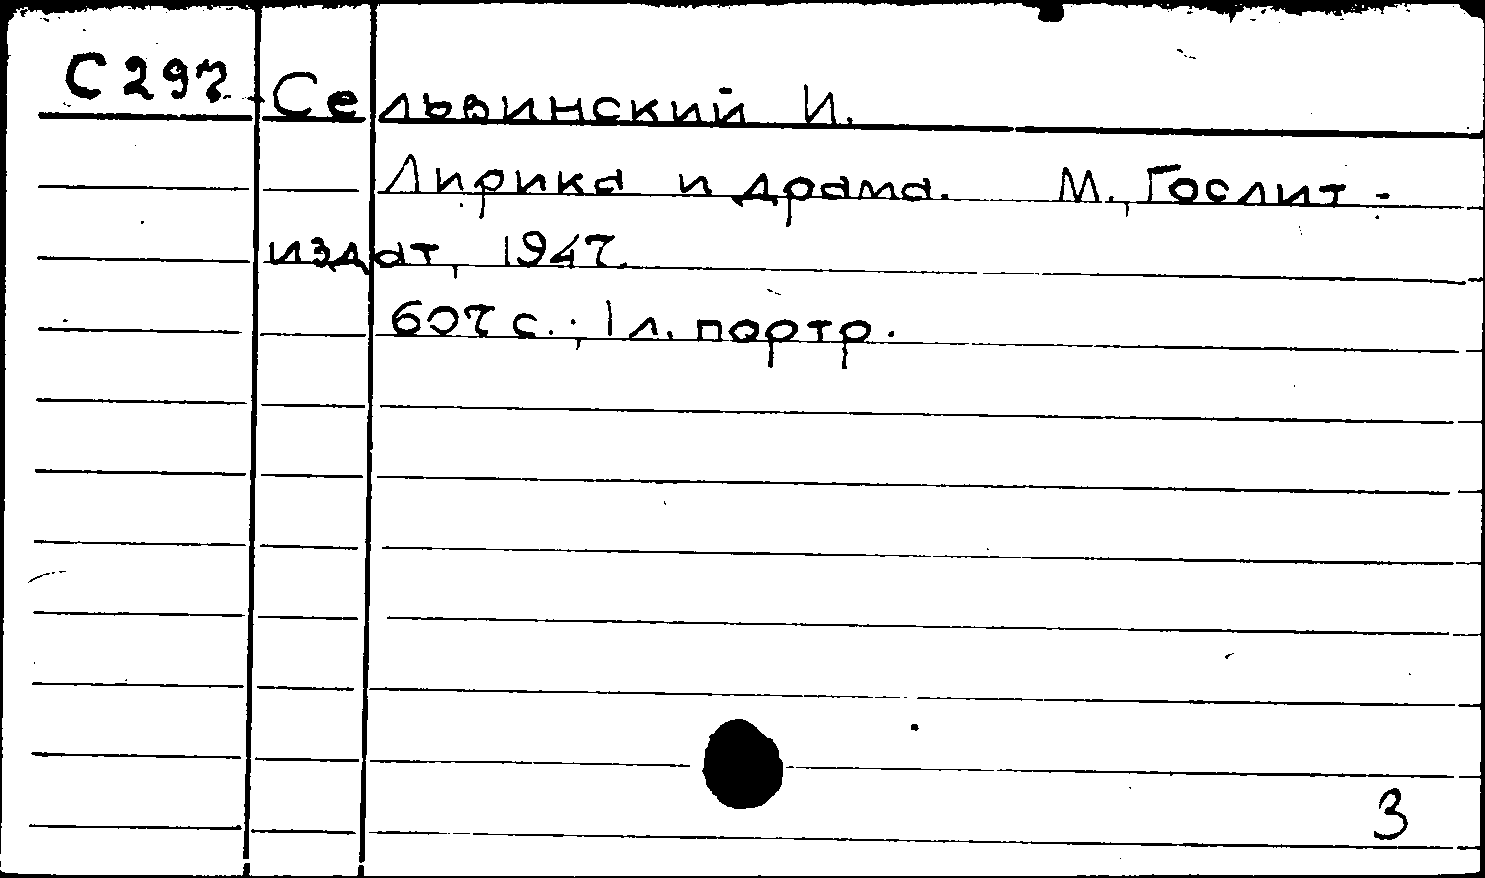 С297 Сельвинский И.
Лирика и драма. М., Гослит-
издат, 1947.
607 с.; 1 л. портр.
3